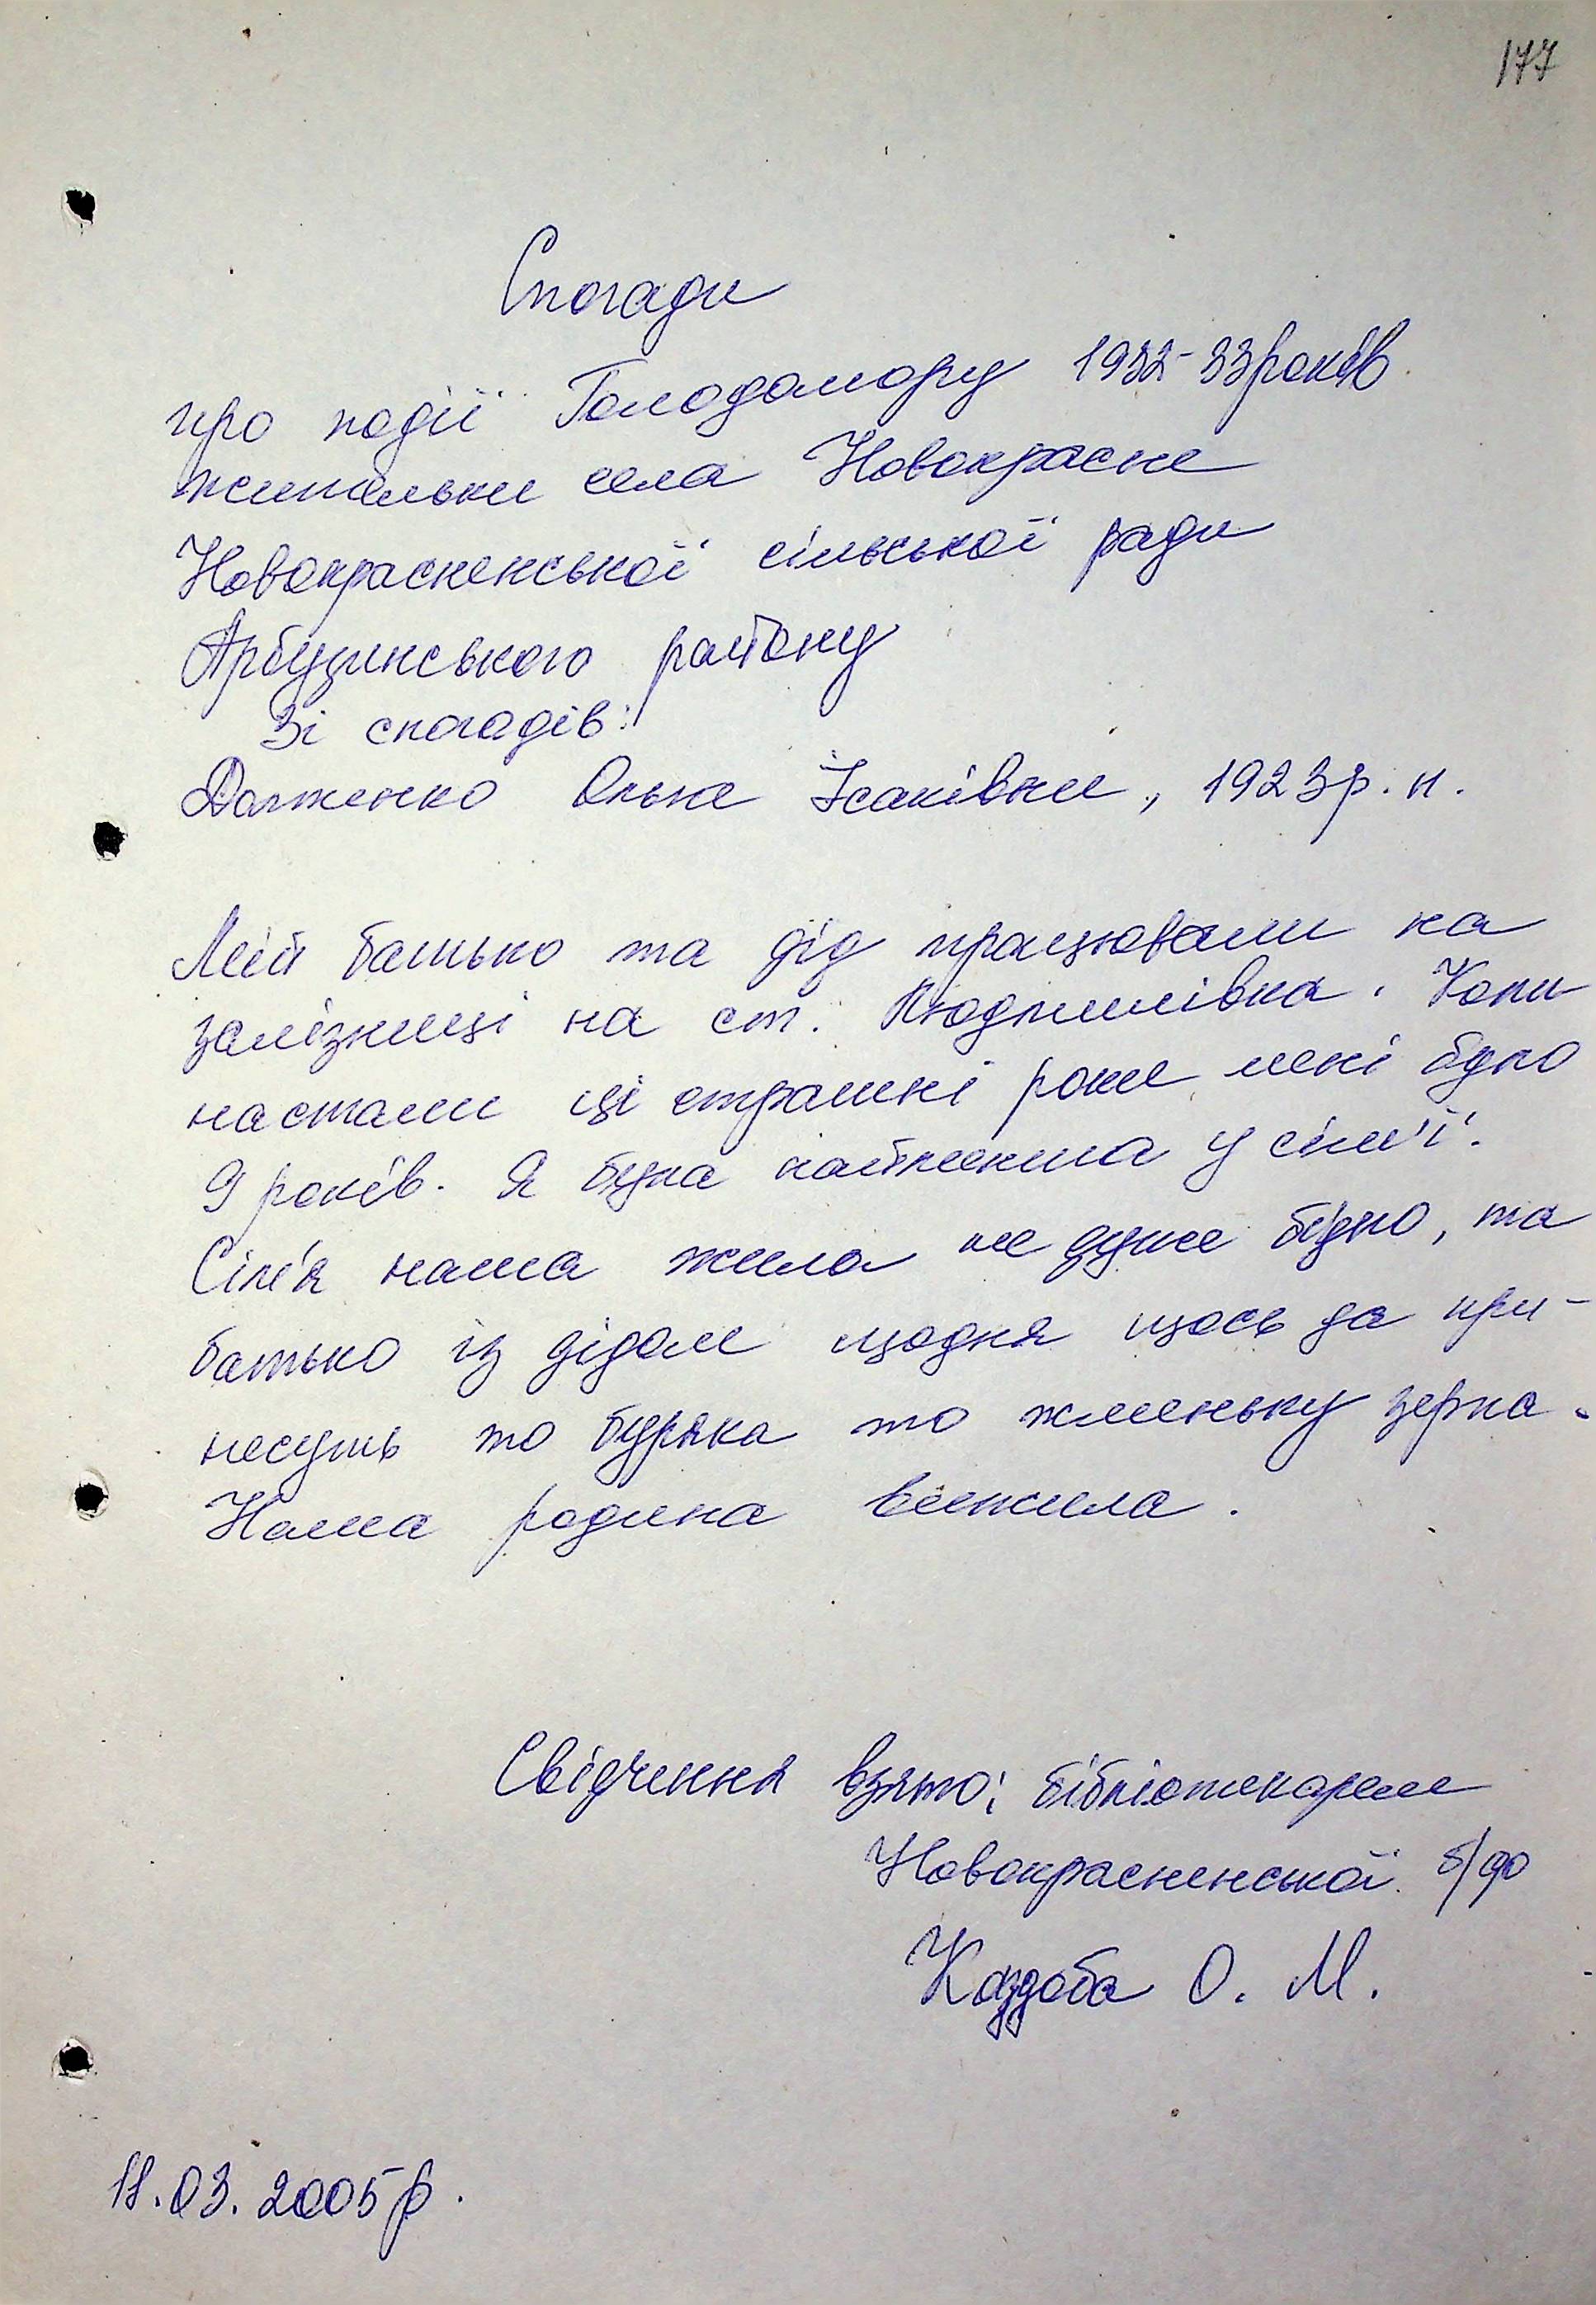 177
Спогади
про події Голодомору 1932-33років
жительки села Новокрасне
Новокрасненської сільської ради
Арбузинського району
Зі спогадів:
Ісаківни, 1923р.н.
Мій батько та дід працювали на
залізниці на ст. Людмилівка. Коли
настали ці страшні роки мені було
9 років. Я була найменша у сім'ї.
Сім'я наша жила не дуже бідно, та
батько із дідом щодня щось да при-
несуть то буряка то жменьку зерна.
Наша родина вижила.
Свідчення взято: бібліотекарем
Новокрасненської б/ф
Каздоба О. М.
18.03.2005р.